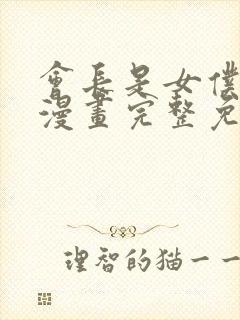 會長是女僕
漫畫完整免
理智的猫一一